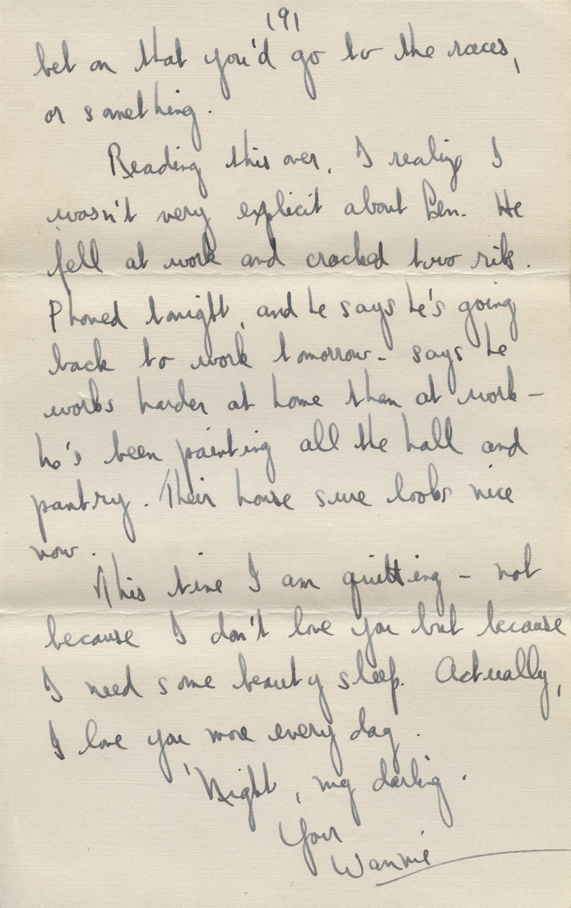 (9)
bet on that you'd go to the races,
or something.
Reading this over, I realize I
wasn't very explicit about Len. He
fell at work and cracked two ribs.
Phoned tonight, and he says he's going
back to work tomorrow - says he
works harder at home then at work -
he's been painting all the hall and
pantry. Their house sure looks nice
now.
This time I am quitting - not
because I don't love you but because
I need some beauty sleep. Actually,
I love you more every day.
'Night, my darling.
Your
Wannie